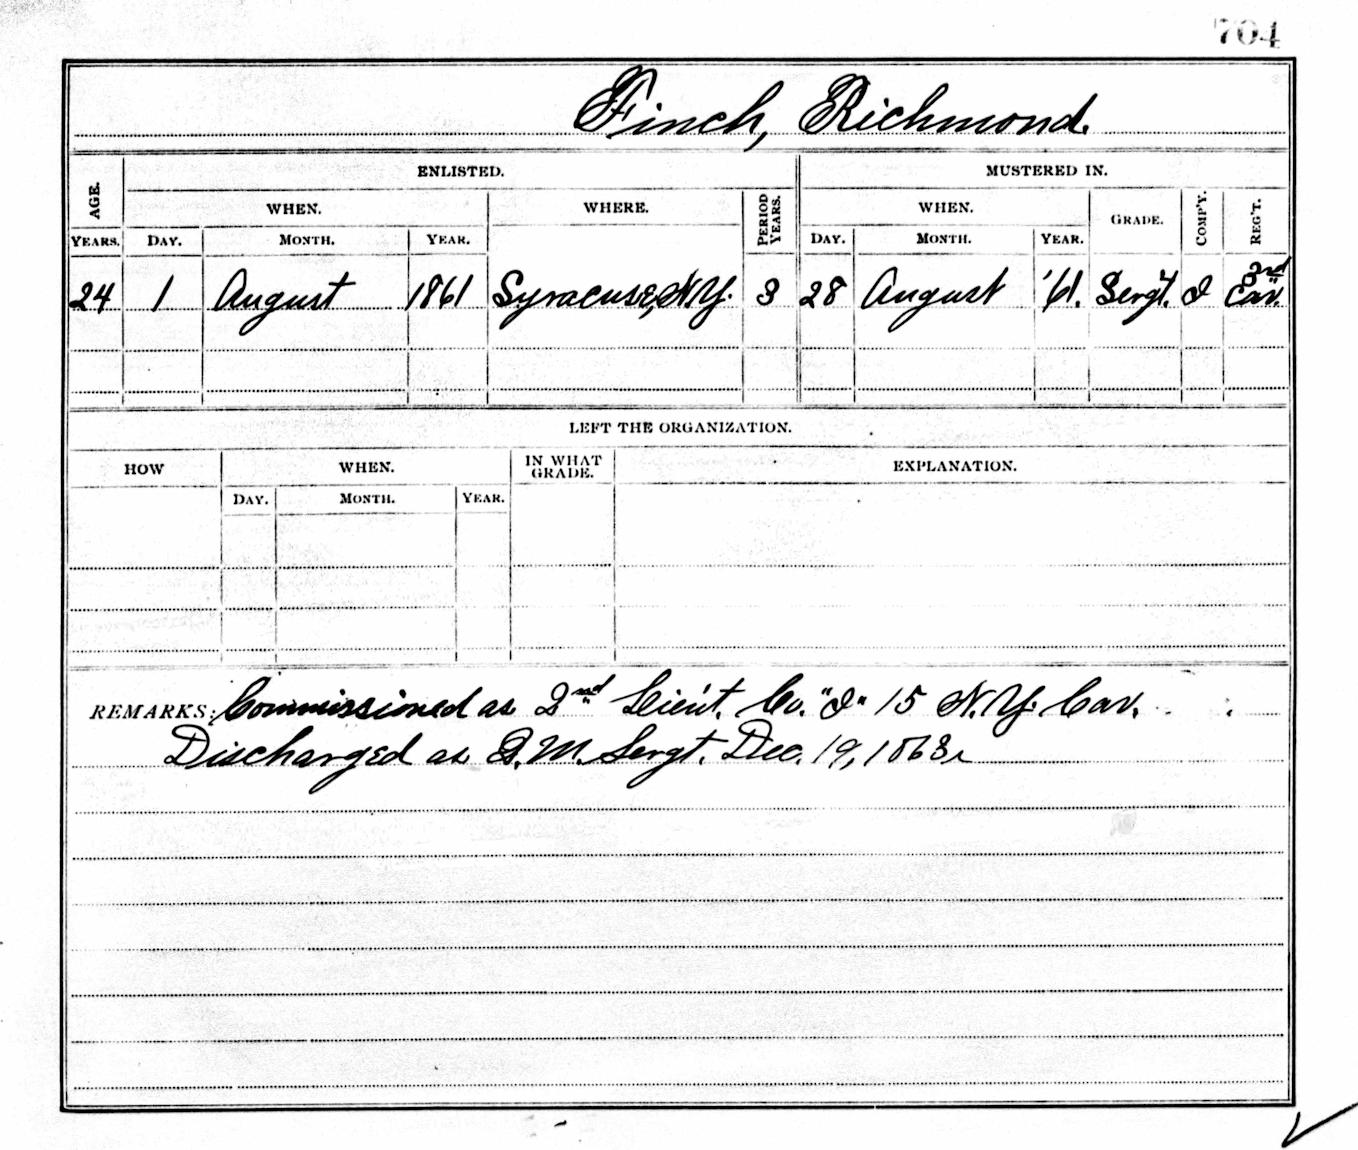 704
Finch, Richmond.
ENLISTED. MUSTERED IN.
AGE. WHEN. WHERE. PERIOD YEARS. WHEN. GRADE. COMP'Y. REG'T.
YEARS. DAY. MONTH. YEAR. DAY. MONTH. YEAR.
24 1 August 1861 Syracuse, N.Y. 3 28 August '61. Sergt. I 3rd Cav.
LEFT THE ORGANIZATION.
HOW WHEN. IN WHAT GRADE. EXPLANATION.
DAY. MONTH. YEAR.
REMARKS: Commissioned as 2nd Lieut. Co. "I" 15 N.Y. Cav.
Discharged as Q.M. Sergt. Dec. 19, 1863